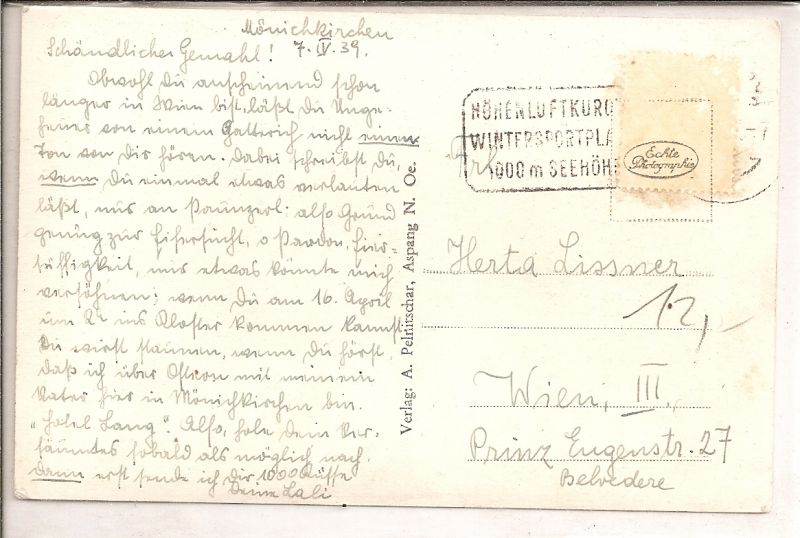 Mönichkirchen
7. IV. 39.
Schändlicher Gemahl!
Obwohl Du anscheinend schon
länger in Wien bist, läßt Du Unge-
heuer von einem Gatterich nicht einen
Ton von Dir hören. Dabei schreibst Du,
wenn Du einmal etwas verlauten
läßt, nur an Paunzerl: also Grund
genug zur Eifersucht, o Pardon, Eier-
süffigkeit, nur etwas könnte mich
versöhnen: wenn Du am 16. April
um 2h ins Kloster kommen kannst.
Du wirst staunen, wenn Du hörst,
daß ich über Ostern mit meinem
Vater hier in Mönichkirchen bin.
"Hotel Lang". Also, hole Dein Ver-
säumtes sobald als möglich nach,
dann erst sende ich Dir 1000 Küsse
Deine Lali
Verlag: A. Pelnitschar, Aspang N. Oe.
HÖHENLUFTKURO
WINTERSPORTPLA
1000 m SEEHÖH
Echte
Photographie
Herta Lissner
12,-
Wien, III.,
Prinz Eugenstr. 27
Belvedere